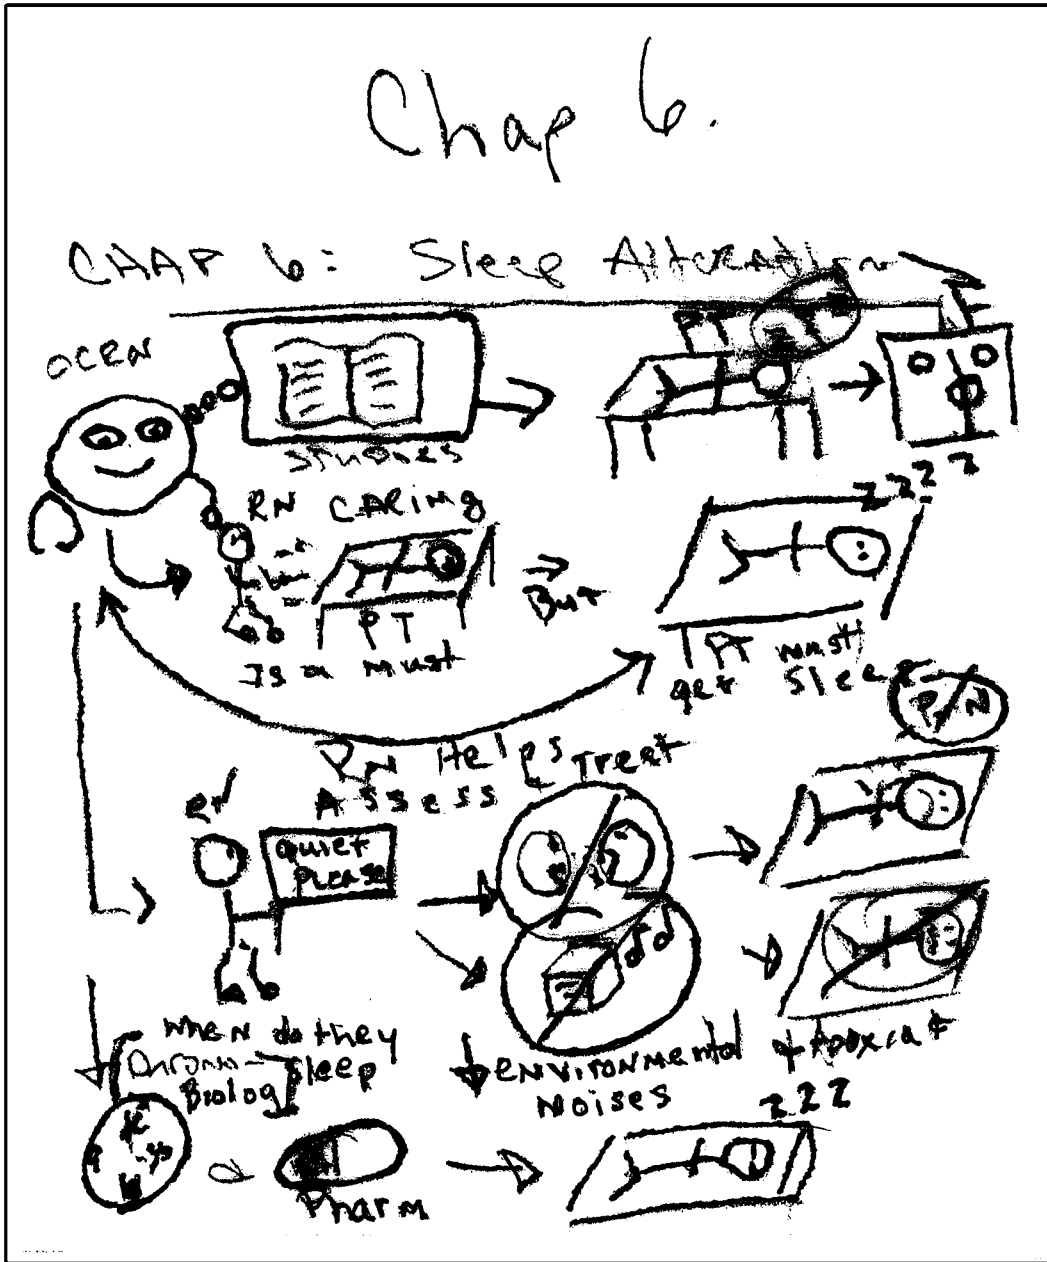 Chap 6.
CHAP 6: Sleep Alteration
OCEAN
PT
STUDIES
zzzz
RN CARING
PT
But
Is a must
PT must
get Sleep
P/N
RN Helps Treat
Assess
quiet
please
When do they
Sleep
Chrono-
Biolog
↓ environmental
Noises
zzz
Pharm